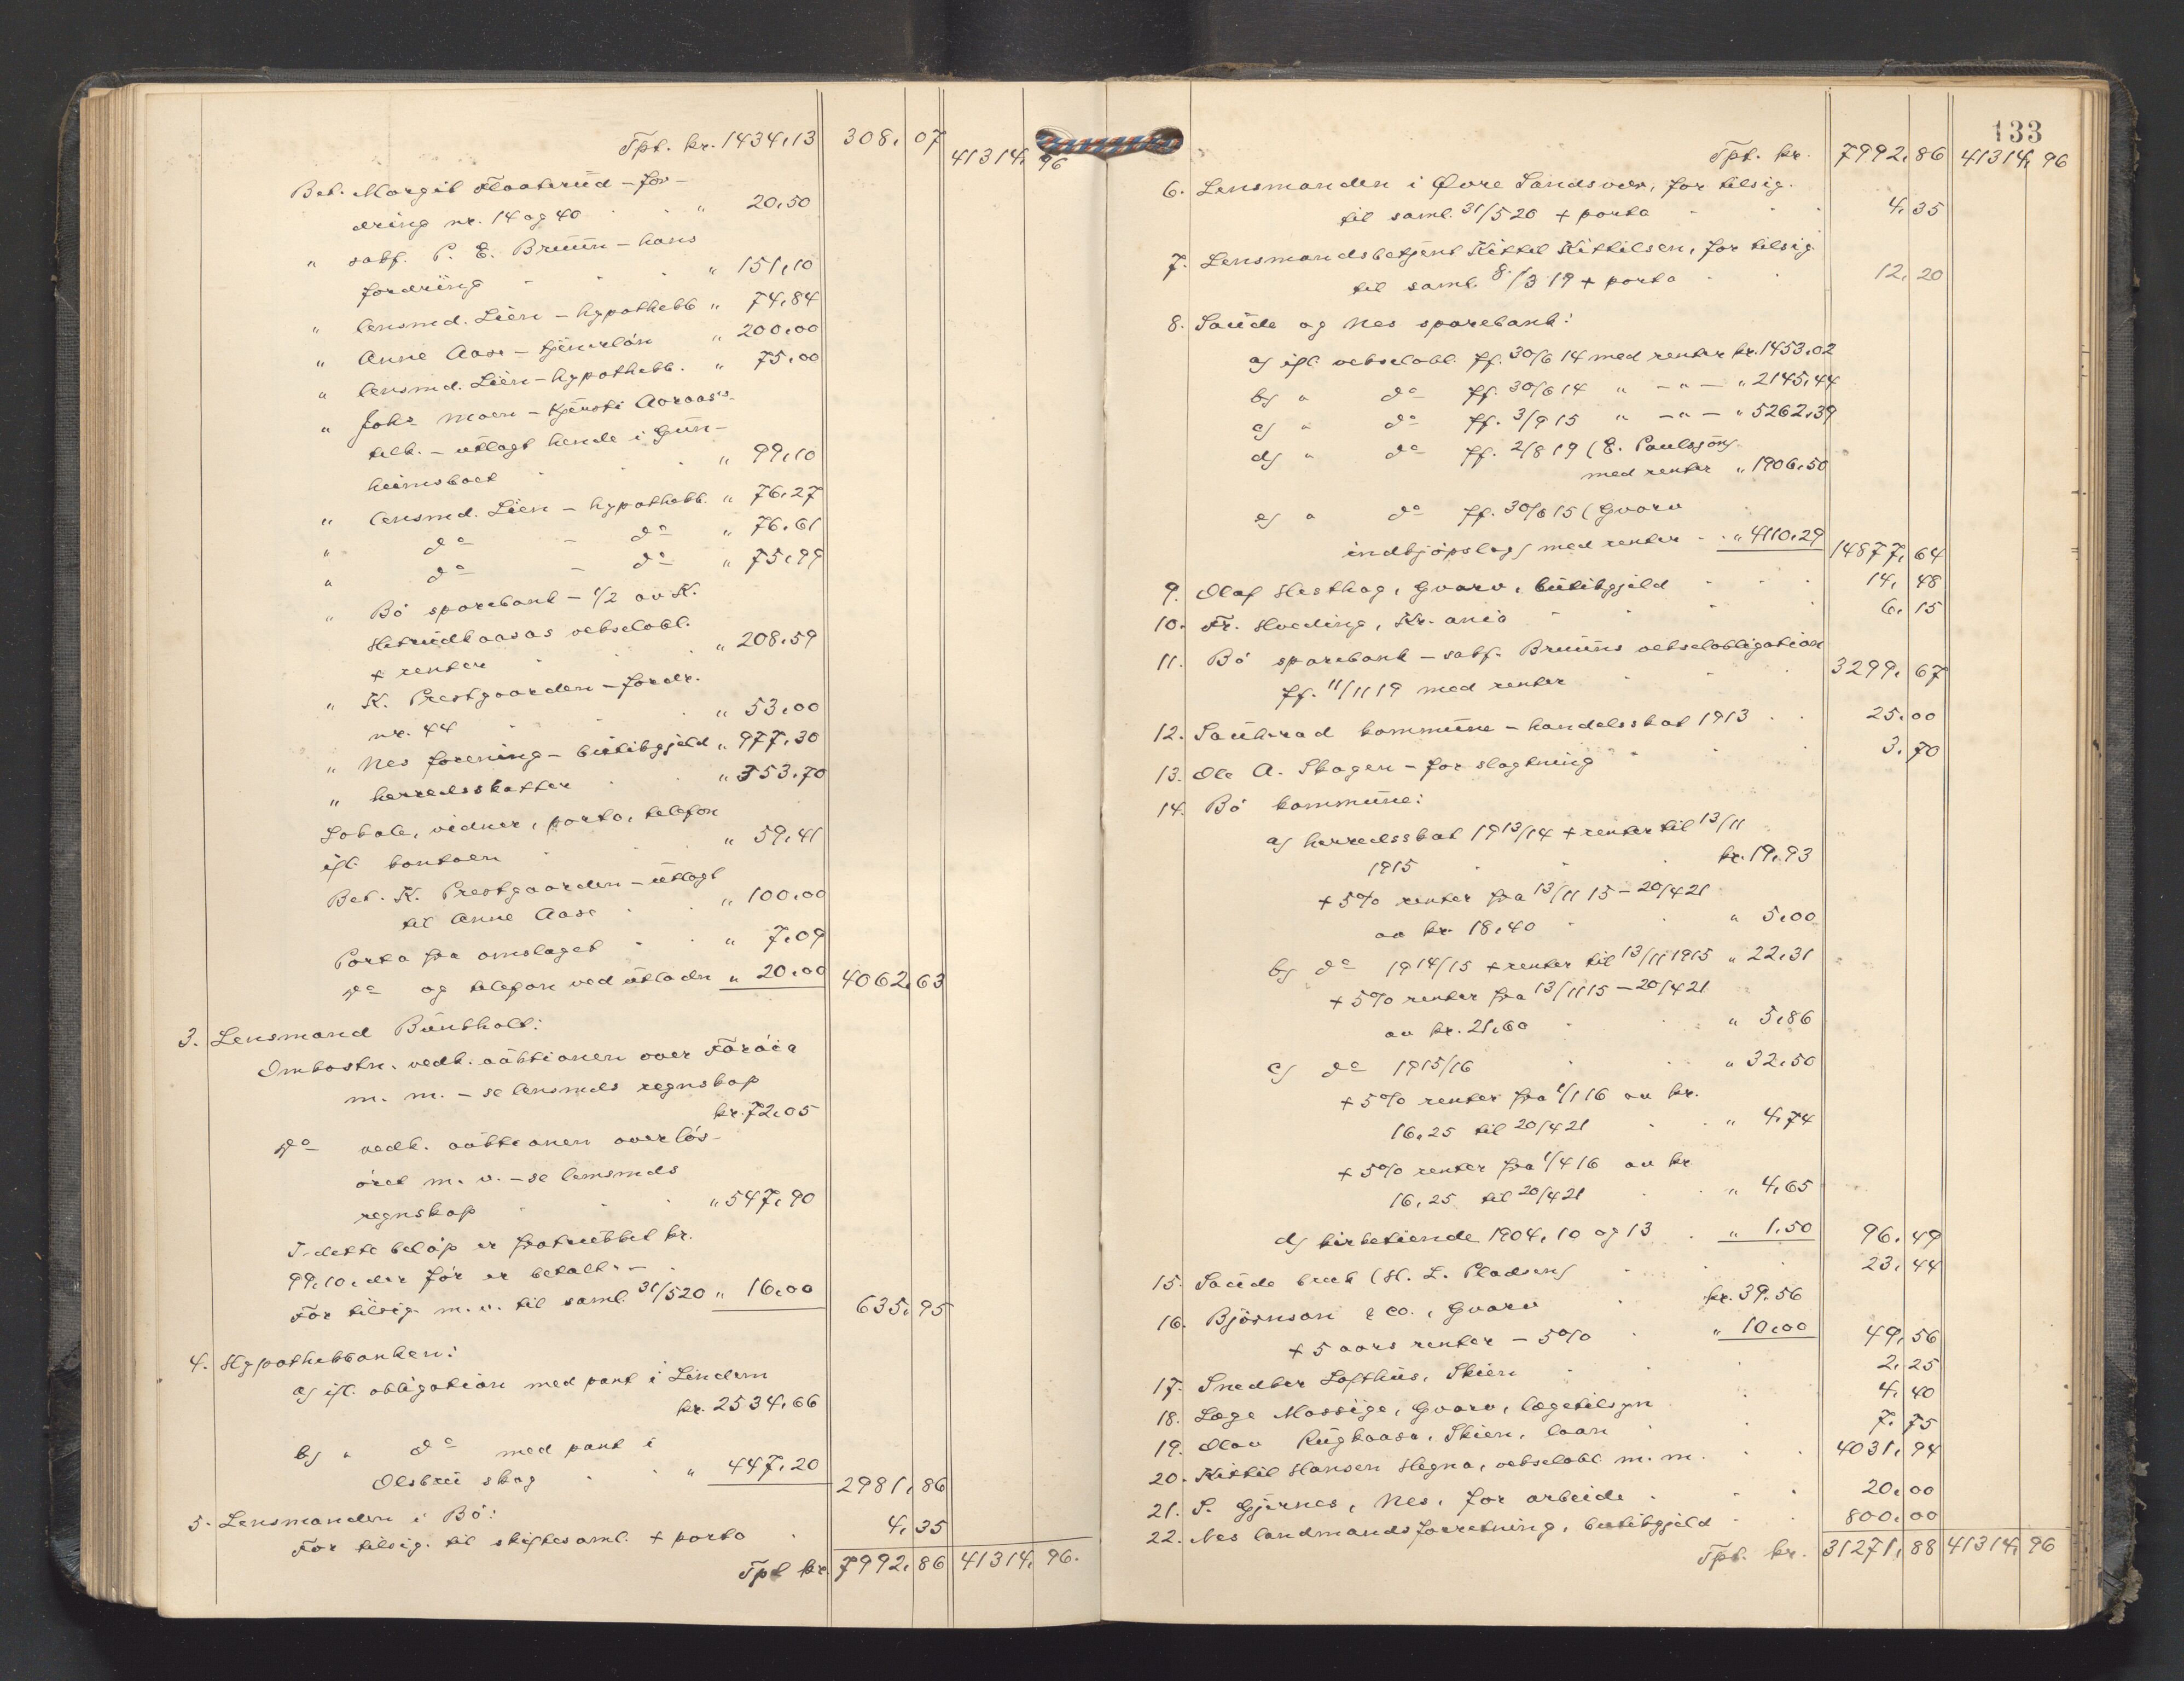 Tpt. kr. 1434,13 308,07
41314,96
Bet. Margit Flaaterud – for-
dring nr. 14 og 40 " 20,50
" sakf. P. E. Bruun – hans
fordring " 151,10
" lensmd. Lien – hypothekb " 74,84
" Anne Aase – tjenerlön " 200,00
" lensmd. Lien – hypothekb. " 75,00
" Johs Moen – Kjersti Aaraas's
tilk. – utlagt hende i Gun-
heimsboet " 99,10
" lensmd. Lien – hypothekb. " 76,27
" do – do " 76,61
" do – do " 75,99
" Bö sparebank – 1/2 av K.
Hetrudkaasas vekselobl.
+ renter " 208,59
" K. Prestgaarden – fordr.
nr. 44 " 53,00
" Nes forening – butikgjeld " 977,30
" herredsskatter " 353,70
Lokale, vidner, porto, telefon
ifl. kontoen " 59,41
Bet. K. Prestgaarden – utlagt
til Anne Aase " 100,00
Porto fra omslaget " 7,09
do og telefon ved utlodn " 20,00 4062,63
3. Lensmand Bunkholt:
Omkostn. vedk. auktionen over Faröia
m. m. – se lensmds regnskap
kr. 72,05
do vedk. auktionen over lös-
öret m. v. – se lensmds
regnskap " 547,90
I dette belöp er fratrukket kr.
99,10, der för er betalt. –
For tilsig. m. v. til saml. 31/5 20 " 16,00 635,95
4. Hypothekbanken:
a) ifl. obligation med pant i Lindem
kr. 2534,66
b) " do med pant i
Olsbru skog " 447,20 2981,86
5. Lensmanden i Bö:
For tilsig. til skiftesaml. + porto 4,35
Tpt kr. 7992,86 41314,96.
133
Tpt. kr. 7992,86 41314,96
6. Lensmanden i Övre Sandsvær, for tilsig.
til saml. 31/5 20 + porto 4,35
7. Lensmandsbetjent Kittil Kittilsen, for tilsig.
til saml. 8/3 19 + porto 12,20
8. Saude og Nes sparebank:
a) ifl. vekselobl. ff. 30/6 14 med renter kr. 1453,02
b) " do ff. 30/6 14 " – " – " 2145,44
c) " do ff. 3/9 15 " – " – " 5262,39
d) " do ff. 2/8 19 (E. Paulssön)
med renter " 1906,50
e) " do ff. 30/6 15 (Gvarv
indkjöpslag) med renter " 4110,29 14877,64
9. Olaf Hesthag, Gvarv, butikgjeld 14,48
10. Fr. Hveding, Kr.ania 6,15
11. Bö sparebank – sakf. Bruuns vekselobligation
ff. 11/11 19 med renter 3299,67
12. Sauherad kommune – handelsskat 1913 25,00
13. Ole A. Skogen – for slagtning 3,70
14. Bö kommune:
a) herredsskat 1913/14 + renter til 13/11
1915 kr. 19,93
+ 5% renter fra 13/11 15 – 20/4 21
av kr. 18,40 " 5,00
b) do 1914/15 + renter til 13/11 1915 " 22,31
+ 5% renter fra 13/11 15 – 20/4 21
av kr. 21,60 " 5,86
c) do 1915/16 " 32,50
+ 5% renter fra 1/1 16 av kr.
16,25 til 20/4 21 " 4,74
+ 5% renter fra 1/4 16 av kr
16,25 til 20/4 21 " 4,65
d) kirketiende 1904, 10 og 13 " 1,50 96,49
15. Saude bruk (H. L. Pladsen) 23,44
16. Björnson & Co., Gvarv kr. 39,56
+ 5 aars renter – 5% " 10,00 49,56
17. Snedker Lofthus, Skien 2,25
18. Læge Massige, Gvarv, lægetilsyn 4,40
19. Olav Rugkaasa, Skien, laan 7,75
20. Kittil Hansen Hegna, vekselobl. m. m. 4031,94
21. S. Gjernes, Nes, for arbeide 20,00
22. Nes landmandsforretning, butikgjeld 800,00
Tpt. kr. 31271,88 41314,96